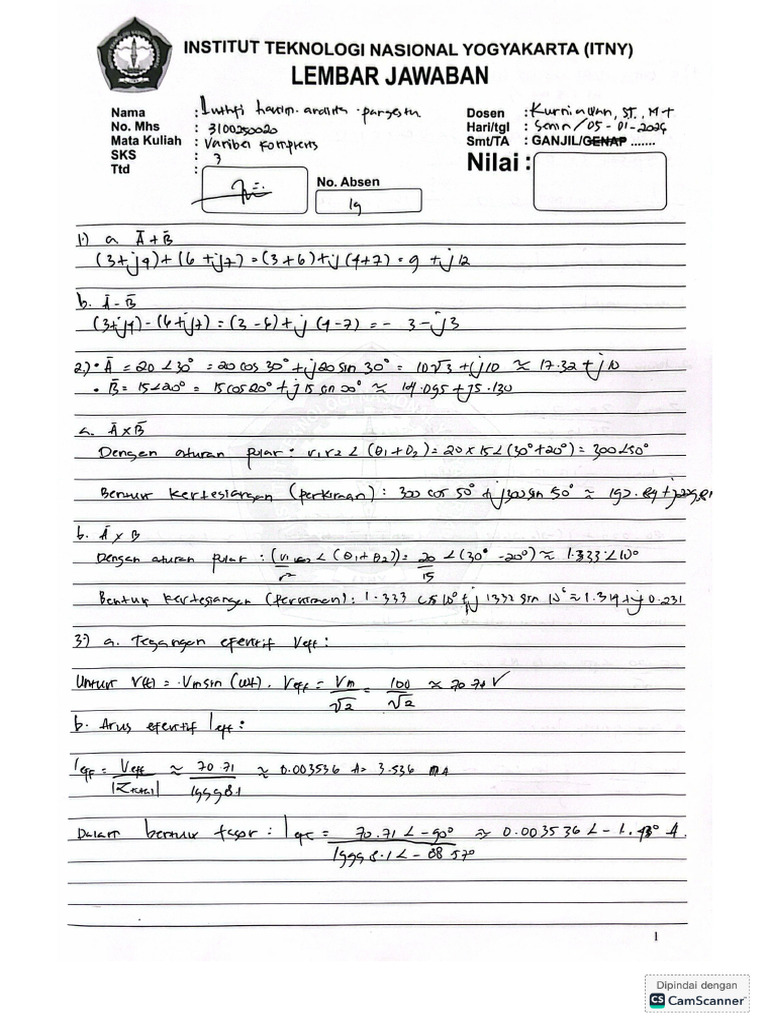 INSTITUT TEKNOLOGI NASIONAL YOGYAKARTA (ITNY)
LEMBAR JAWABAN
Nama :
No. Mhs : 3100250020
Mata Kuliah : Variabel Kompleks
SKS : 3
Ttd :
No. Absen
19
Dosen : Kurniawan, ST., MT
Hari/tgl : Senin / 05 - 01 - 2026
Smt/TA : GANJIL/GENAP .......
Nilai :
1.) a. Ā + B̄
(3+j4)+(6+j7)=(3+6)+j(4+7)=9+j12
b. Ā - B̄
(3+j4)-(6+j7)=(3-6)+j(4-7)=-3-j3
2.) • Ā = 20∠30° = 20 cos 30° + j20 sin 30° = 10√3 + j10 ≈ 17.32 + j10
• B̄ = 15∠20° = 15 cos 20° + j15 sin 20° ≈ 14.095 + j5.130
a. Ā × B̄
Dengan aturan polar : r1r2 ∠ (θ1+θ2) = 20 × 15 ∠ (30°+20°) = 300∠50°
Bentuk kartesiangan (perkiraan) : 300 cos 50° + j300 sin 50° ≈ 192.84 + j229.81
b. Ā × B
Dengan aturan polar : (r1/r2 ∠ (θ1+θ2)) = 20/15 ∠ (30° - 20°) ≈ 1.333∠10°
Bentuk kartesiangan (perkiraan) : 1.333 cos 10° + j 1.333 sin 10° ≈ 1.314 + j 0.231
3.) a. Tegangan efektif Veff :
Untuk V(t) = Vm sin (ωt). Veff = Vm/√2 = 100/√2 ≈ 70.71 V
b. Arus efektif Ieff :
Ieff = Veff/|Ztotal| ≈ 70.71/19998.1 ≈ 0.003536 A = 3.536 mA
Dalam bentuk fasor : Ieff = 70.71∠-90°/19998.1∠-88.57° ≈ 0.003536∠-1.43° A.
1
Dipindai dengan
CS CamScanner